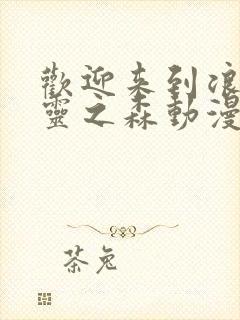 歡迎来到浪
靈之森動漫
茶兔